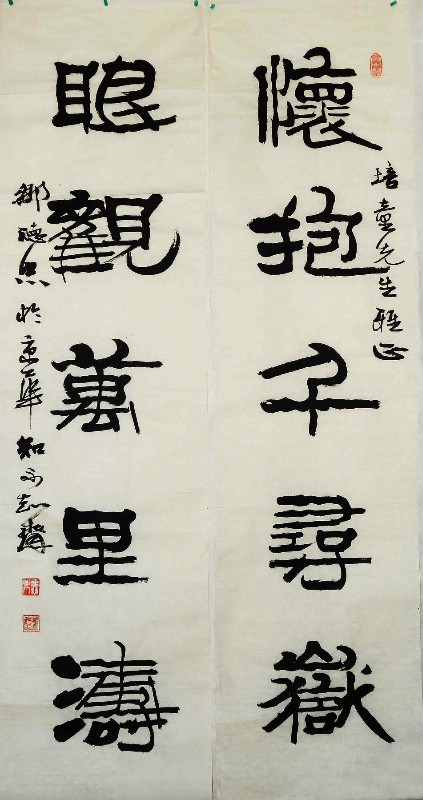 懷抱千尋嶽
培童先生雅正
眼觀萬里濤
鄒德忠於京華知不知齋